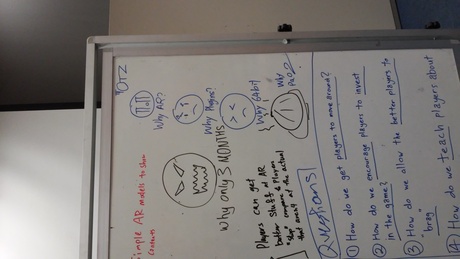 OTZ
Why AR?
Why Plugins?
Why 64bit
Why
Simple AR models to show
contents
Why only 3 MONTHS
Players can get
better stuff at AR
"stop" compare to Players
that aren't at the actual
Questions!
① How do we get players to move around?
② How do we encourage players to invest
in the game?
③ How do we allow the better players to
"brag"
④ How do we teach players about